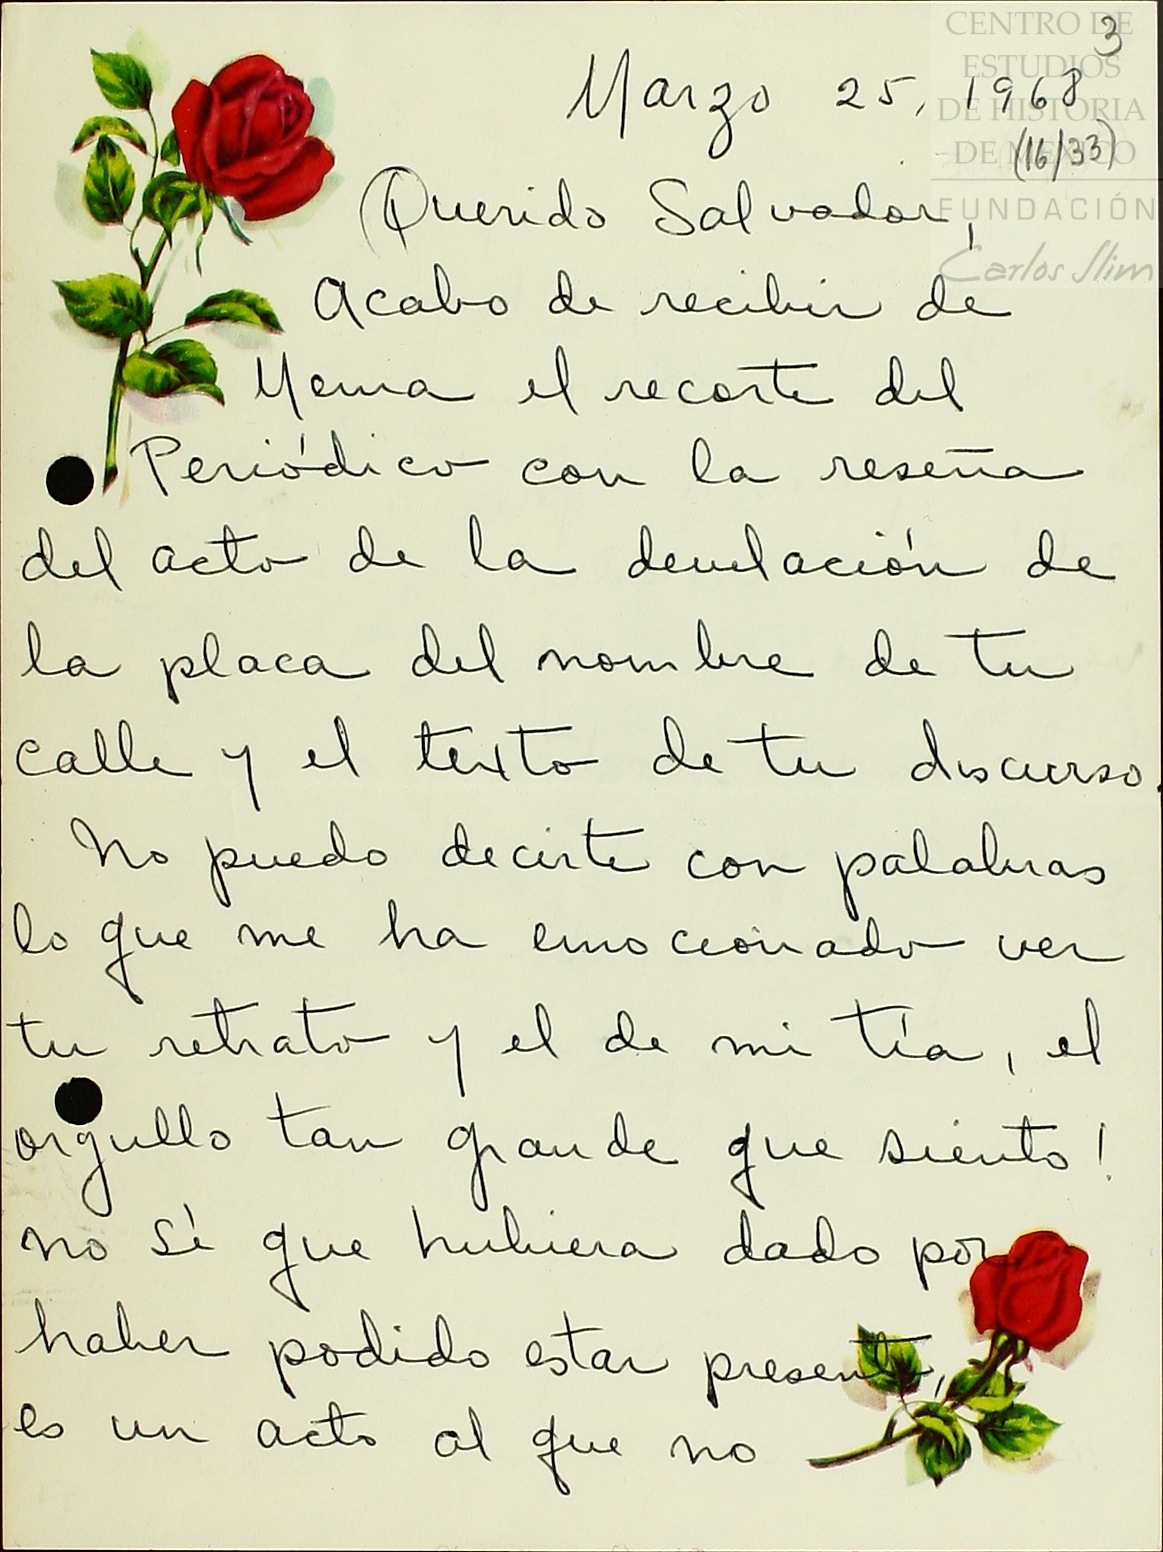 CENTRO DE
ESTUDIOS
DE HISTORIA
DE MÉXICO
FUNDACIÓN
Carlos Slim
3
Marzo 25, 1968
(16/33)
Querido Salvador,
Acabo de recibir de
Mema el recorte del
Periódico con la reseña
del acto de la develación de
la placa del nombre de tu
calle y el texto de tu discurso.
No puedo decirte con palabras
lo que me ha emocionado ver
tu retrato y el de mi tía, el
orgullo tan grande que siento!
no sé que hubiera dado por
haber podido estar presente,
es un acto al que no